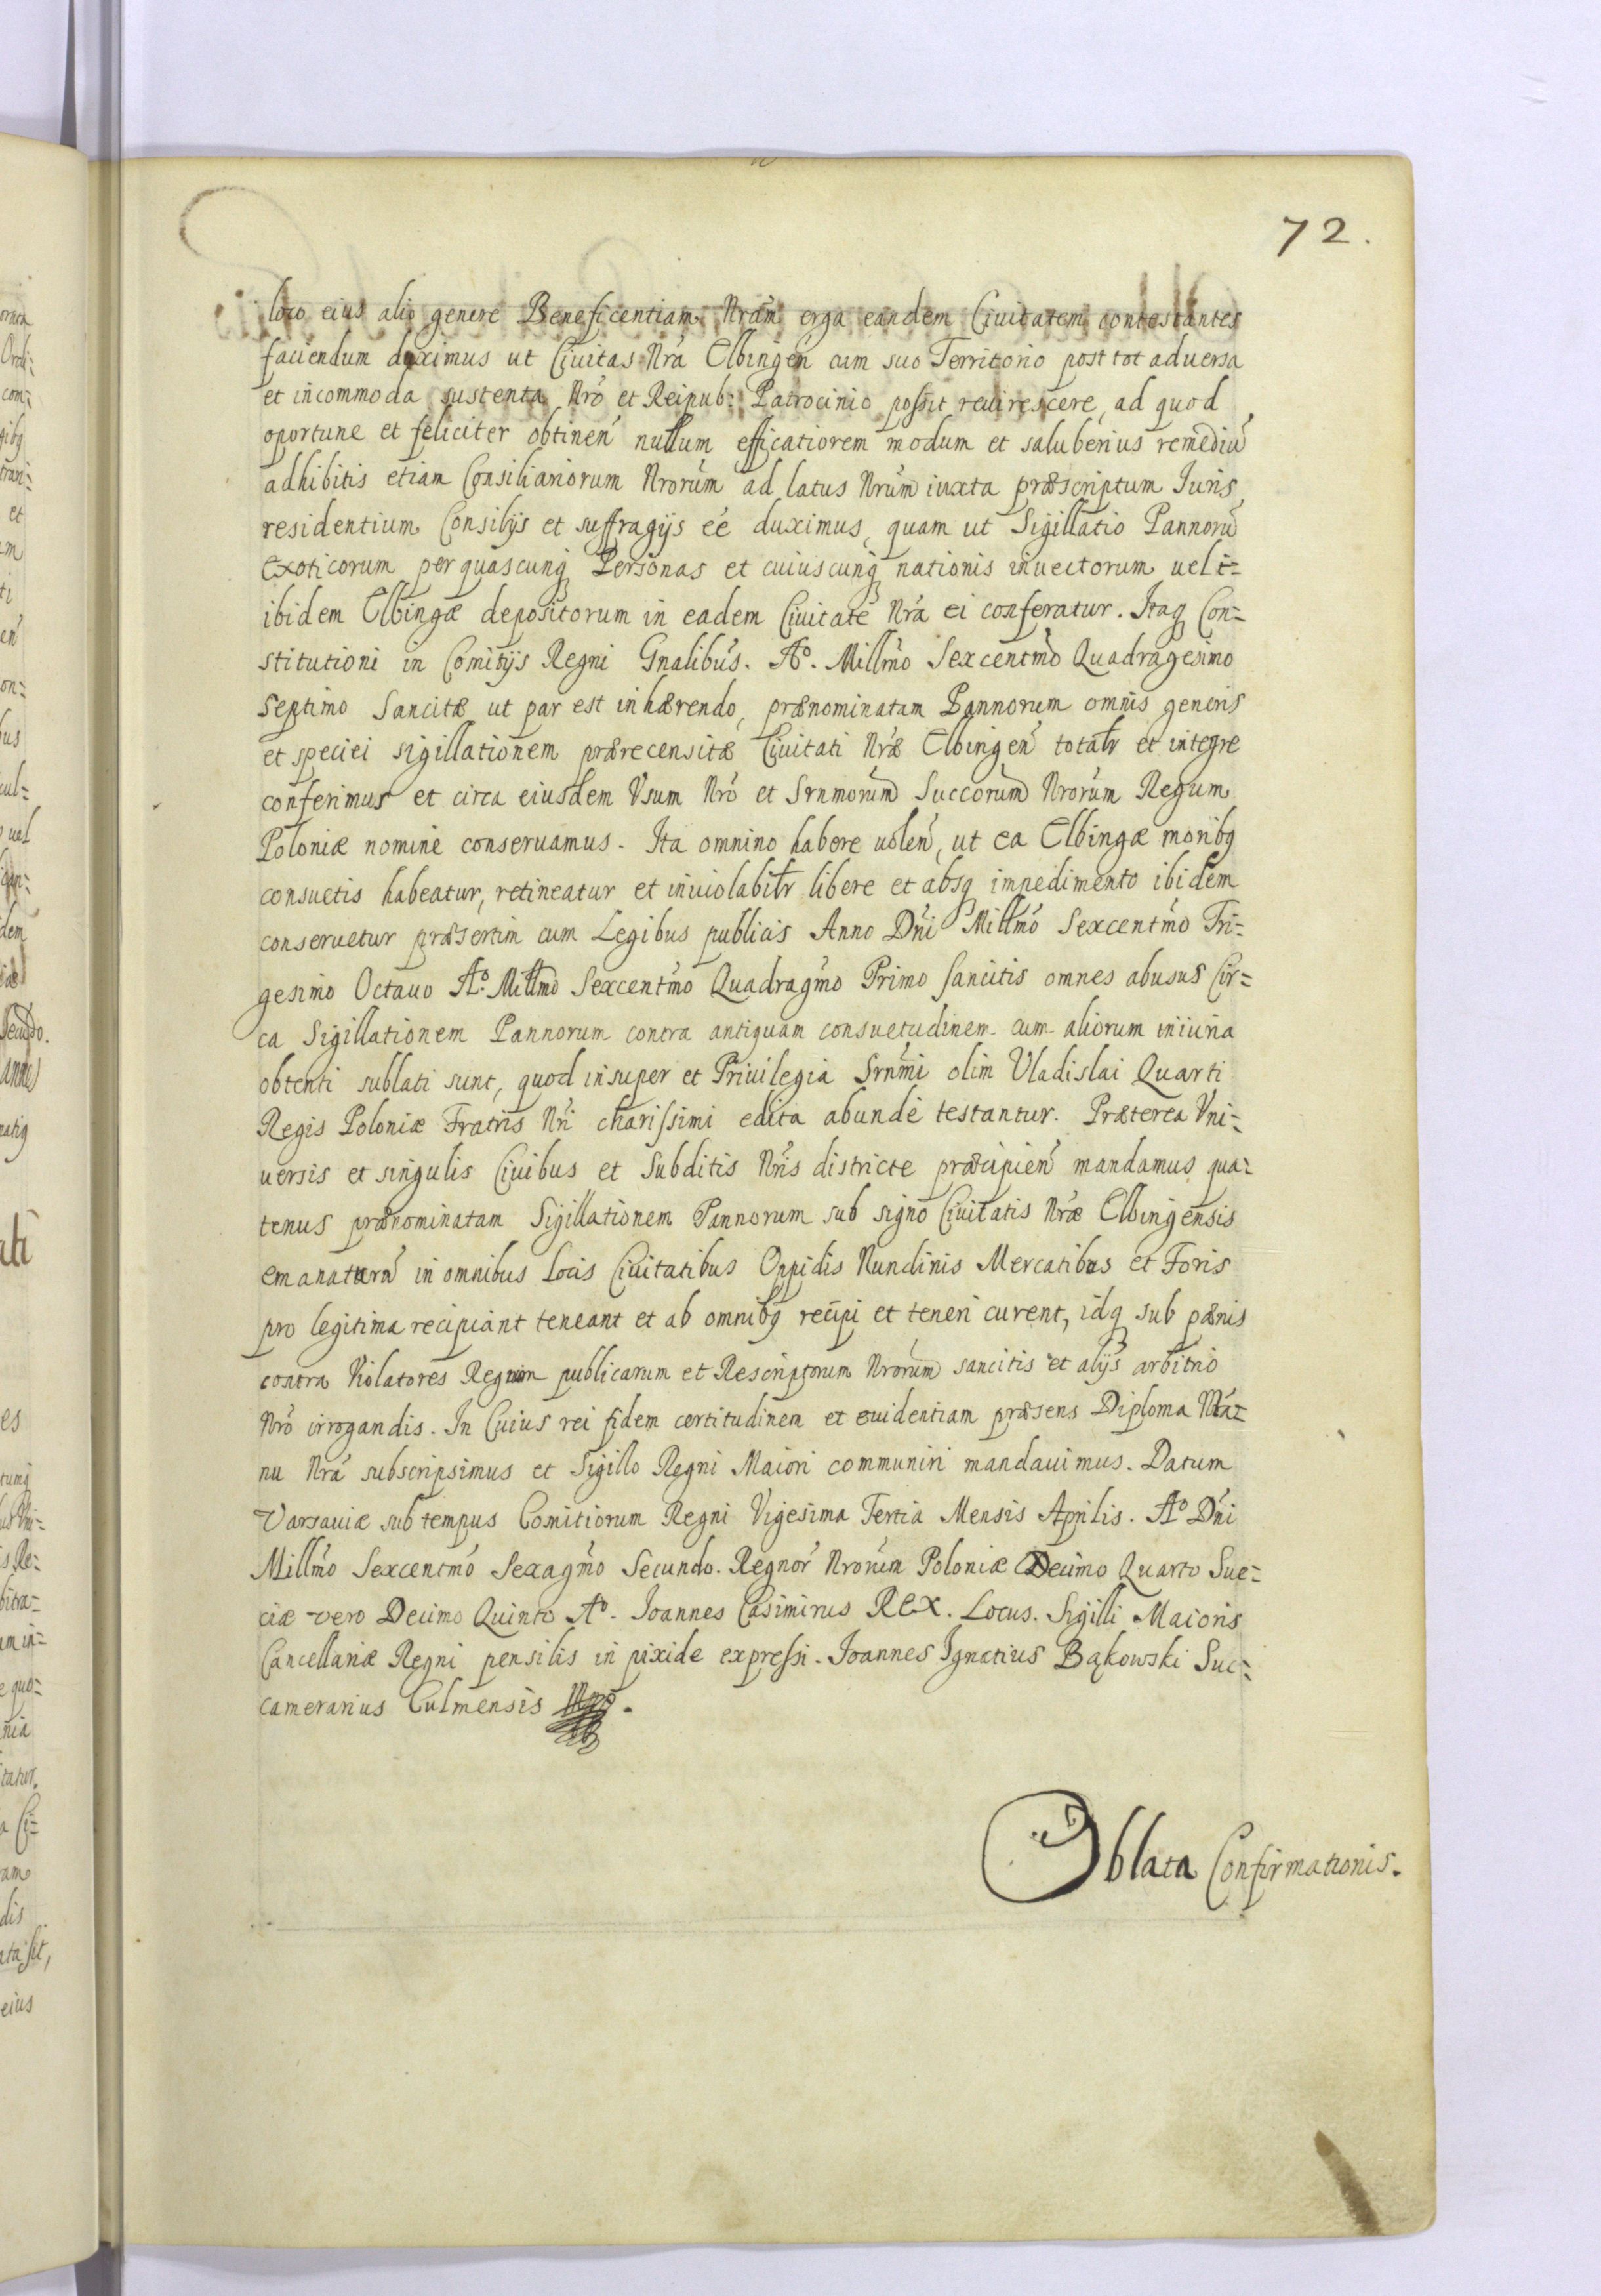 72.
loco eius alio genere Beneficentiam Nrám erga eandem Ciuitatem contestantes
faciendum duximus ut Ciuitas Nrá Elbingeń cum suo Territorio post tot aduersa
et incommoda sustenta Nró et Reipub: Patrocinio possit reuirescere, ad quod
oportune et feliciter obtineń nullum efficatiorem modum et saluberius remediū
adhibitis etiam Consiliariorum Nrorúm ad latus Nrúm iuxta præscriptum Iuris
residentium Consilijs et suffragijs éé duximus, quam ut Sigillatio Pannorū
Exoticorum per quascunq Personas et cuiuscunq nationis inuectorum uel i=
ibidem Elbingæ depositorum in eadem Ciuitate Nrá ei conferatur. Itaq Con=
stitutioni in Comitijs Regni Gnalibús. Aº. Millmó Sexcentmó Quadragesimo
Septimo Sancitæ ut par est inhærendo, prænominatam Pannorum omnis generis
et speciei sigillationem prærecensitæ Ciuitati Nræ Elbingeń totalr et integre
conferimus et circa eiusdem Vsum Nró et Srnmorúm Succorúm Nrorúm Regum
Poloniæ nomine conseruamus. Ita omnino habere uoleń, ut ea Elbingæ moribq
consuetis habeatur, retineatur et inuiolabilr libere et absq impedimento ibidem
conseruetur præsertim cum Legibus publicis Anno Dńi Millmó Sexcentmó Tri=
gesimo Octauo Aº. Millmó Sexcentmó Quadragmó Primo sancitis omnes abusus Cir=
ca Sigillationem Pannorum contra antiquam consuetudinem cum aliorum iniuria
obtenti sublati sunt, quod insuper et Priuilegia Srnmí olim Vladislai Quarti
Regis Poloniæ Fratris Nrí charissimi edita abunde testantur. Præterea Vni=
uersis et singulis Ciuibus et Subditis Nrís districte præcipień mandamus qua=
tenus prænominatam Sigillationem Pannorum sub signo Ciuitatis Nræ Elbingensis
emanaturḿ in omnibus Locis Ciuitatibus Oppidis Nundinis Mercatibus et Foris
pro legitima recipiant teneant et ab omnibq recipi et teneri curent, idq sub pænis
contra Violatores publicarum et Rescriptorum Nrorúm sancitis et alijs arbitrio
Nró irrogandis. In Cuius rei fidem certitudinem et euidentiam præsens Diploma Ma=
nu Nrá subscripsimus et Sigillo Regni Maiori communiri mandauimus. Datum
Varsauiæ sub tempus Comitiorum Regni Vigesima Tertia Mensis Aprilis. Aº Dńi
Millmó Sexcentmó Sexagmó Secundo. Regnoŕ Nrorúm Poloniæ Decimo Quarto Sue=
ciæ vero Decimo Quinto Aº. Ioannes Casimirus REX. Locus. Sigilli Maioris
Cancellariæ Regni pensilis in pixide expressi. Ioannes Ignatius Bąkowski Suc=
camerarius Culmensis Mpp.
Oblata Confirmationis.